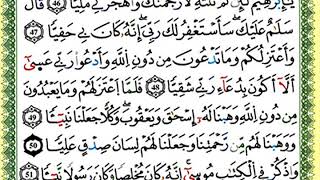 يَٰٓإِبْرَٰهِيمُ لَئِن لَّمْ تَنتَهِ لَأَرْجُمَنَّكَ وَاهْجُرْنِے مَلِيّٗا 46 قَالَ
سَلَٰمٌ عَلَيْكَ سَأَسْتَغْفِرُ لَكَ رَبِّيَ إِنَّهُۥ كَانَ بِے حَفِيّٗا 47
وَأَعْتَزِلُكُمْ وَمَا تَدْعُونَ مِن دُونِ اِللَّهِ وَأَدْعُواْ رَبِّے عَسَىٰٓ
أَلَّآ أَكُونَ بِدُعَآءِ رَبِّے شَقِيّٗا 48 فَلَمَّا اَعْتَزَلَهُمْ وَمَا يَعْبُدُونَ
مِن دُونِ اِللَّهِ وَهَبْنَا لَهُۥٓ إِسْحَٰقَ وَيَعْقُوبَ وَكُلّٗا جَعَلْنَا نَبِيٓـٔٗا 49
وَوَهَبْنَا لَهُم مِّن رَّحْمَتِنَا وَجَعَلْنَا لَهُمْ لِسَانَ صِدْقٍ عَلِيّٗا 50
وَاذْكُرْ فِے اِلْكِتَٰبِ مُوسَىٰٓ إِنَّهُۥ كَانَ مُخْلِصٗا وَكَانَ رَسُولٗا نَّبِيٓـٔٗا 51